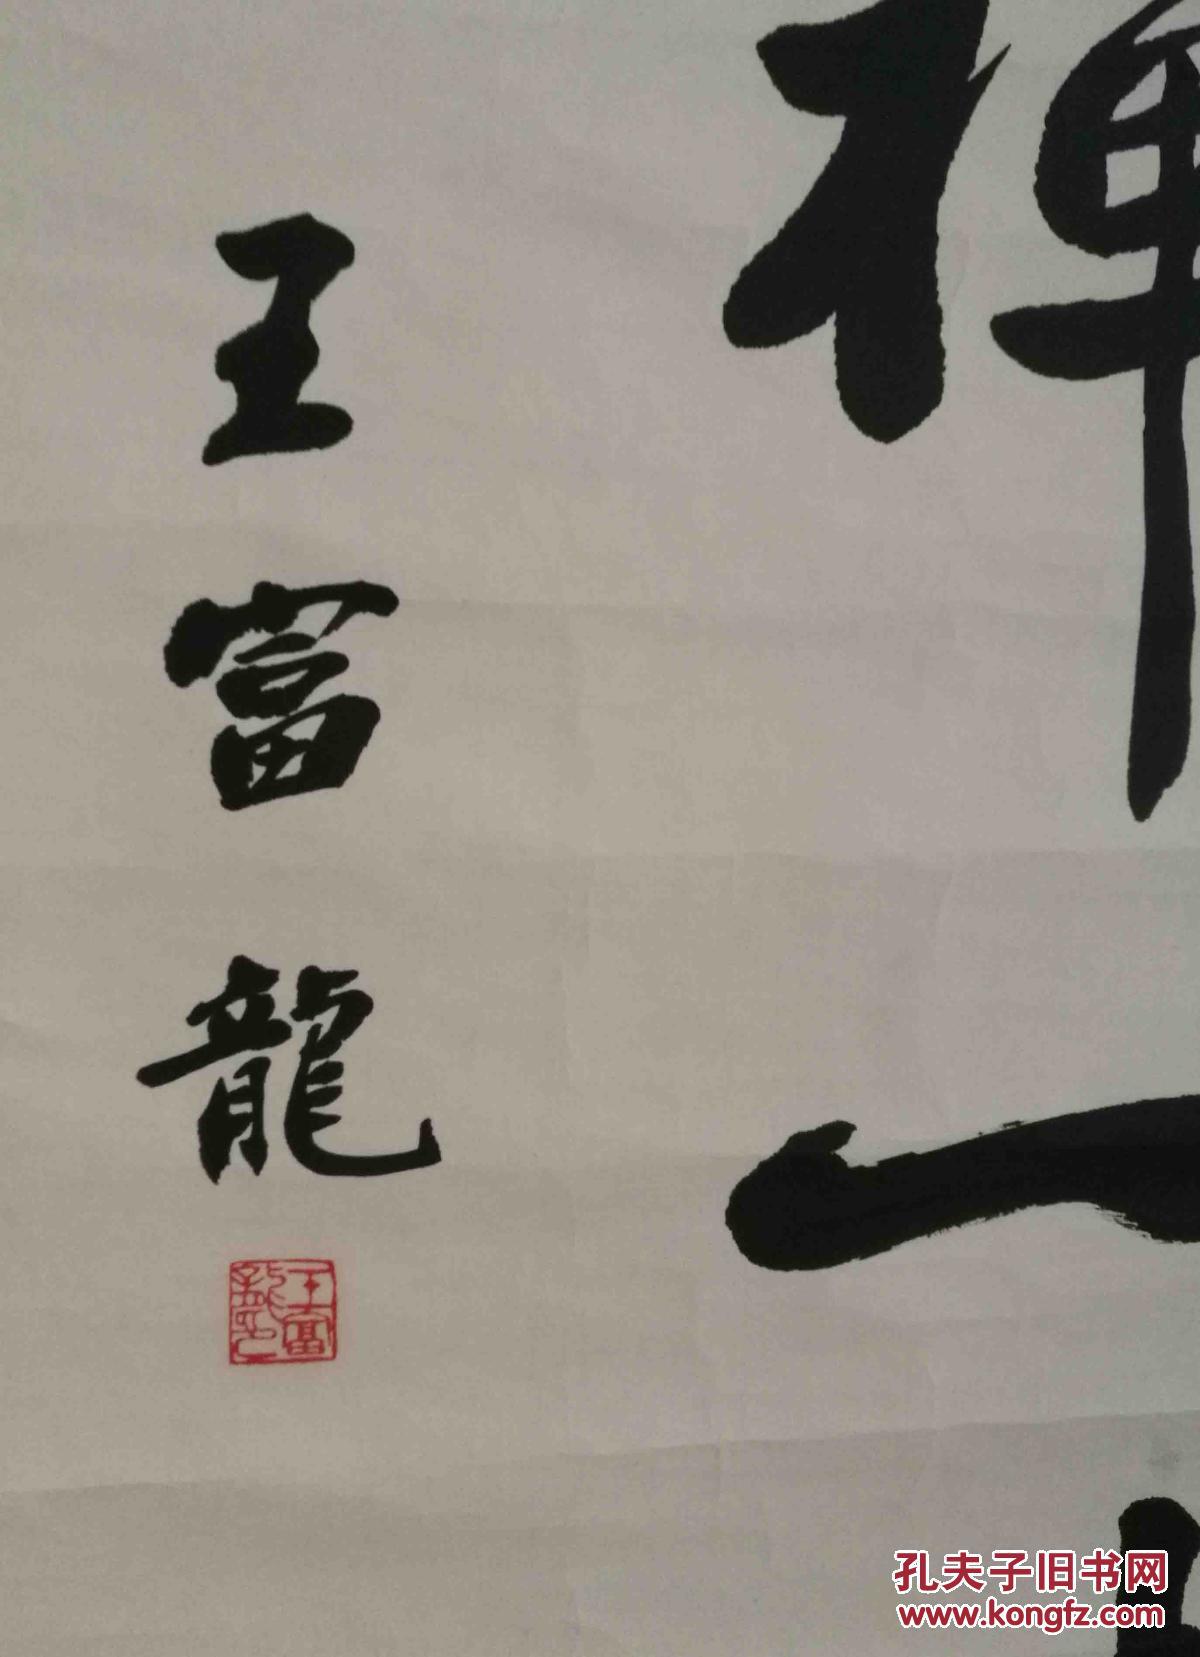 禅一
王富龍
王富龍印
孔夫子旧书网
www.kongfz.com